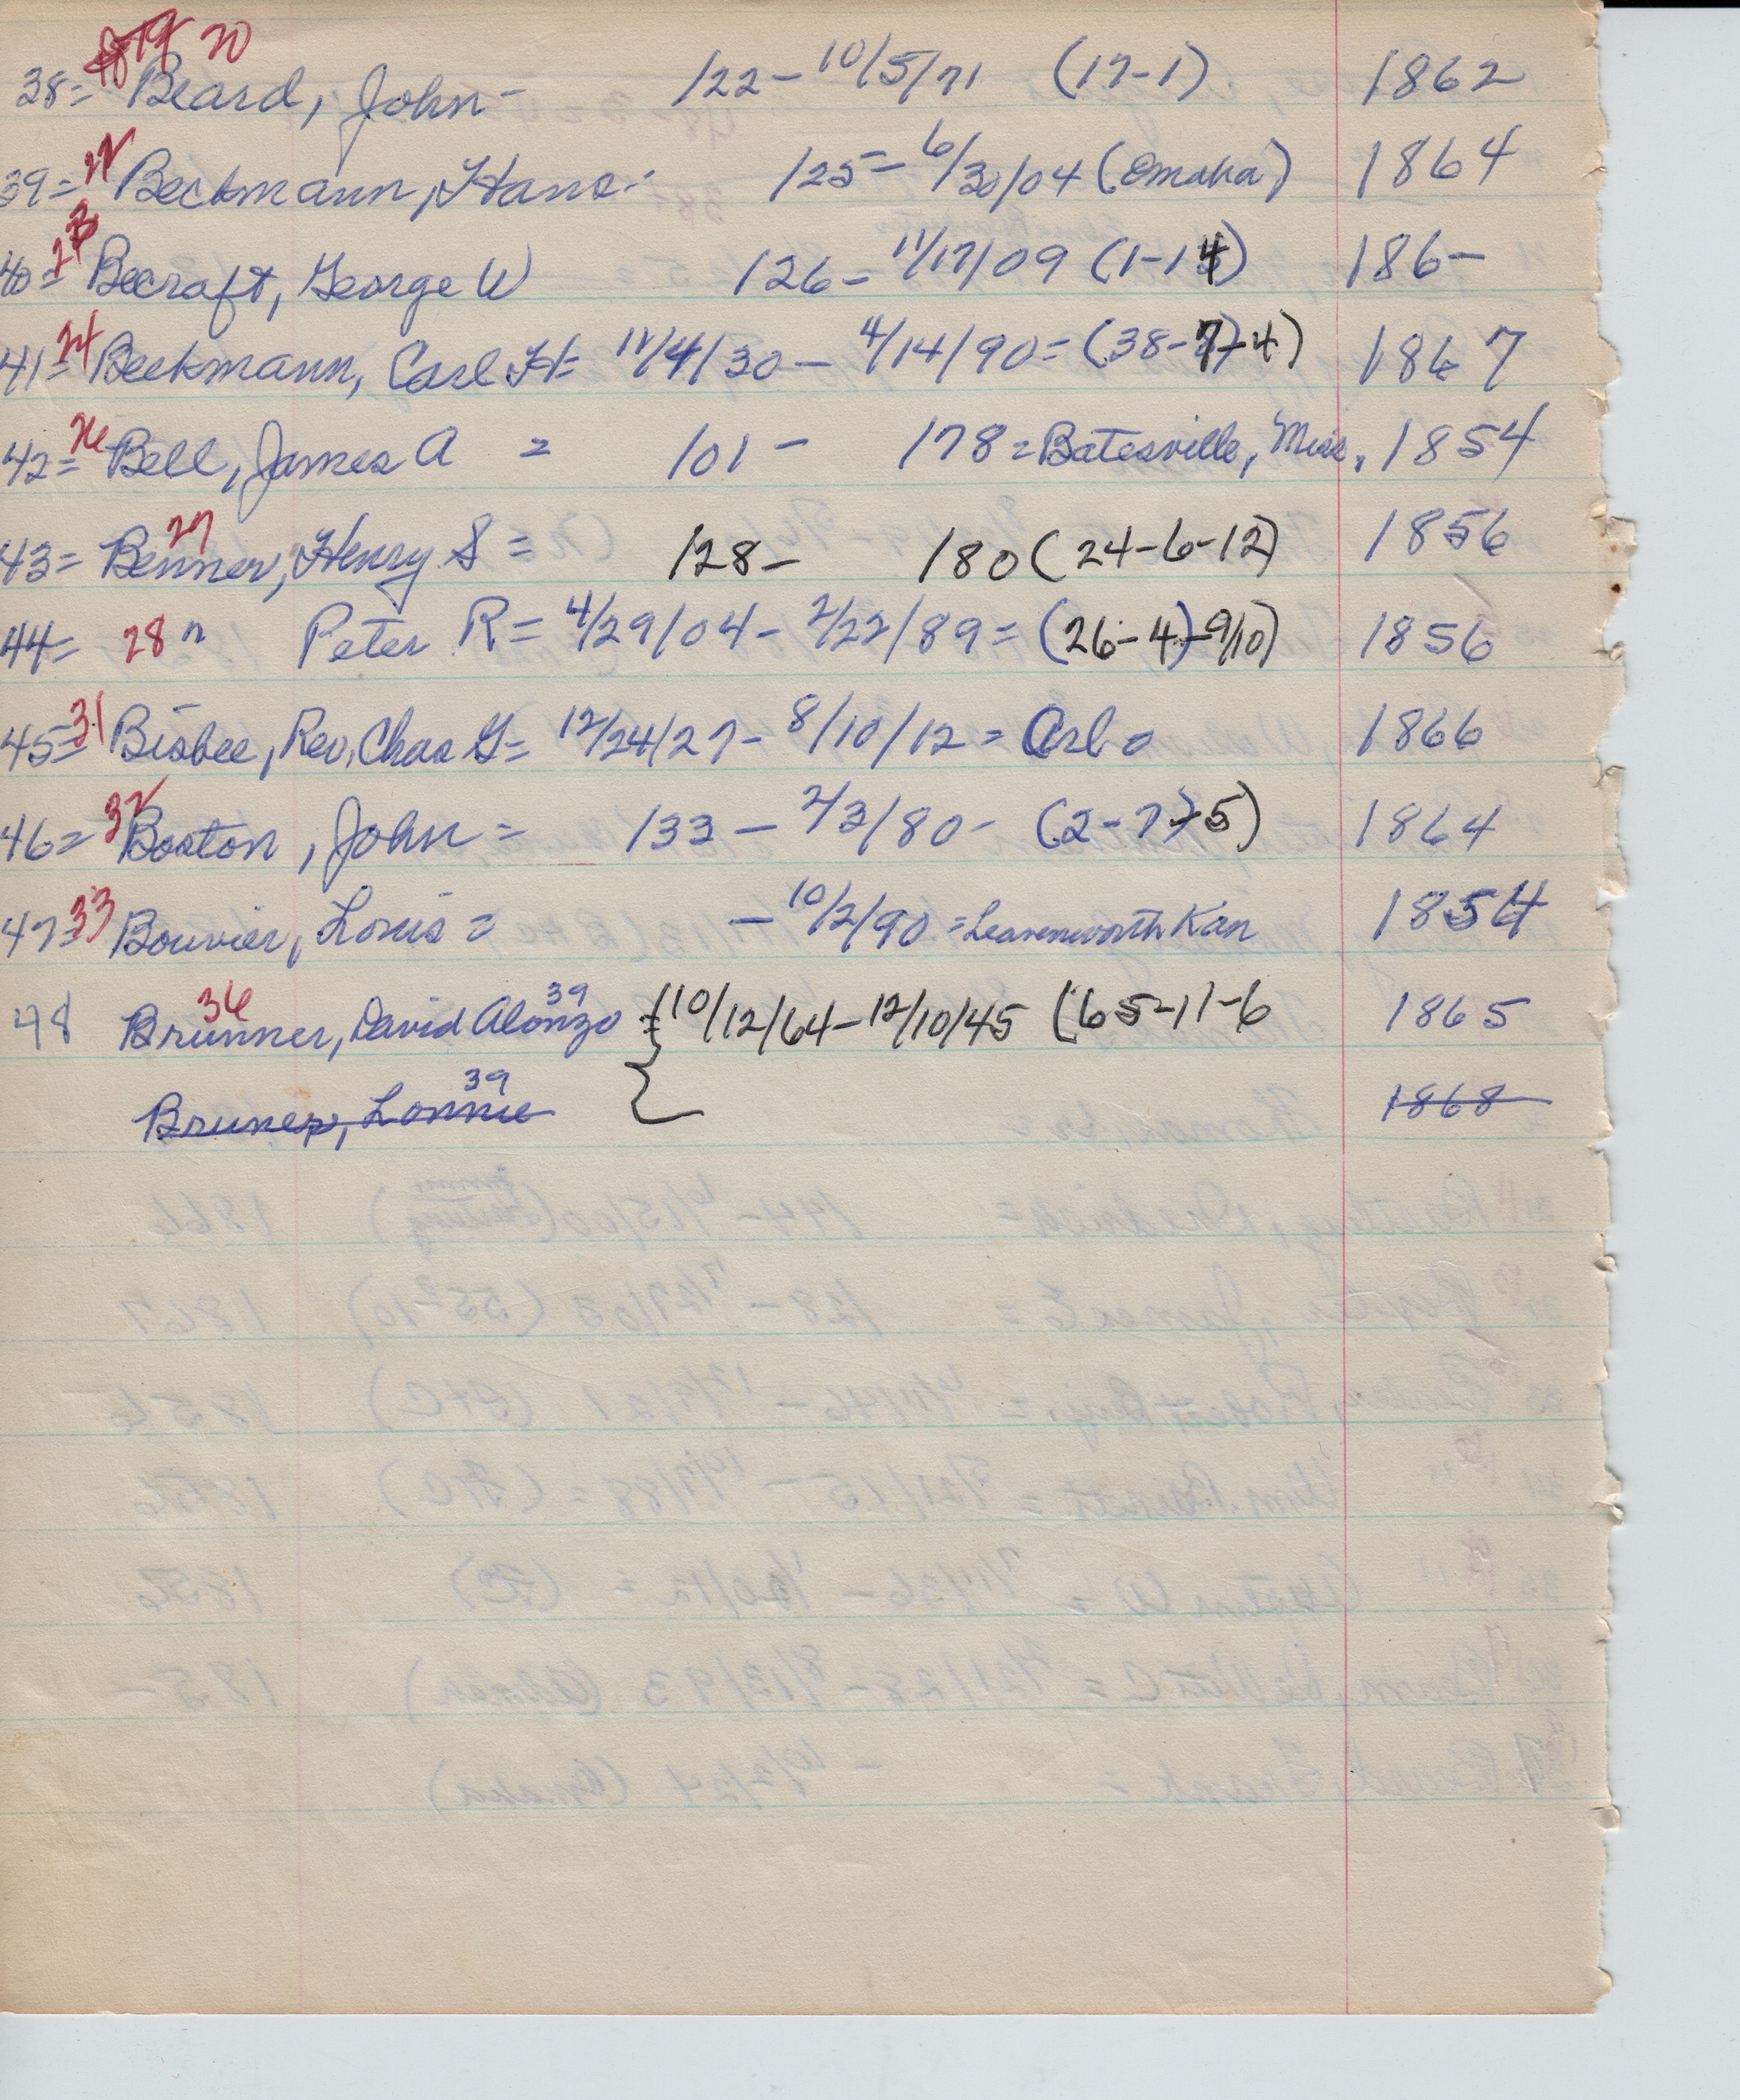 38= 19 20 Beard, John - 122 - 10/5/71 (17-1) 1862
39= 22 Beckmann, Hans - 125 - 6/30/04 (Omaha) 1864
40= 23 Becraft, George W 126 - 11/17/09 (1-14) 186-
41= 24 Beekmann, Carl H= 11/4/30 - 4/14/90= (38-7-4) 1867
42= 26 Bell, James A = 101 - 178 = Batesville, Miss. 1854
43= 27 Benner, Henry S = 128 - 180 (24-6-12) 1856
44= 28 " Peter R = 4/29/04 - 2/22/89 = (26-4)-9/10) 1856
45= 31 Bisbee, Rev. Chas G= 12/24/27 - 8/10/12 = Arl 1866
46= 32 Boston, John = 133 - 2/3/80 - (2-7)-5) 1864
47= 33 Bouvier, Louis = - 10/2/90 = Leavenworth Kan 1854
48 36 Brunner, David Alonzo 39 = { 10/12/64 - 12/10/45 (65-1)-6 1865
Bruner, Lonnie 39 1868